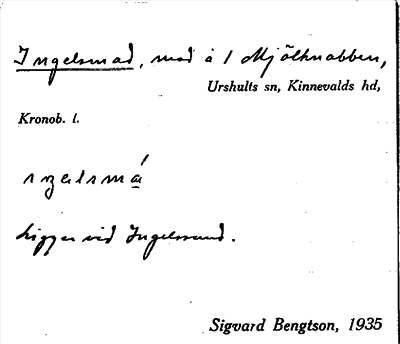 Ingelsmad, mad å 1 Mjölknabben,
Urshults sn, Kinnevalds hd,
Kronob. l.
Ligger vid Ingelsund.
Sigvard Bengtson, 1935